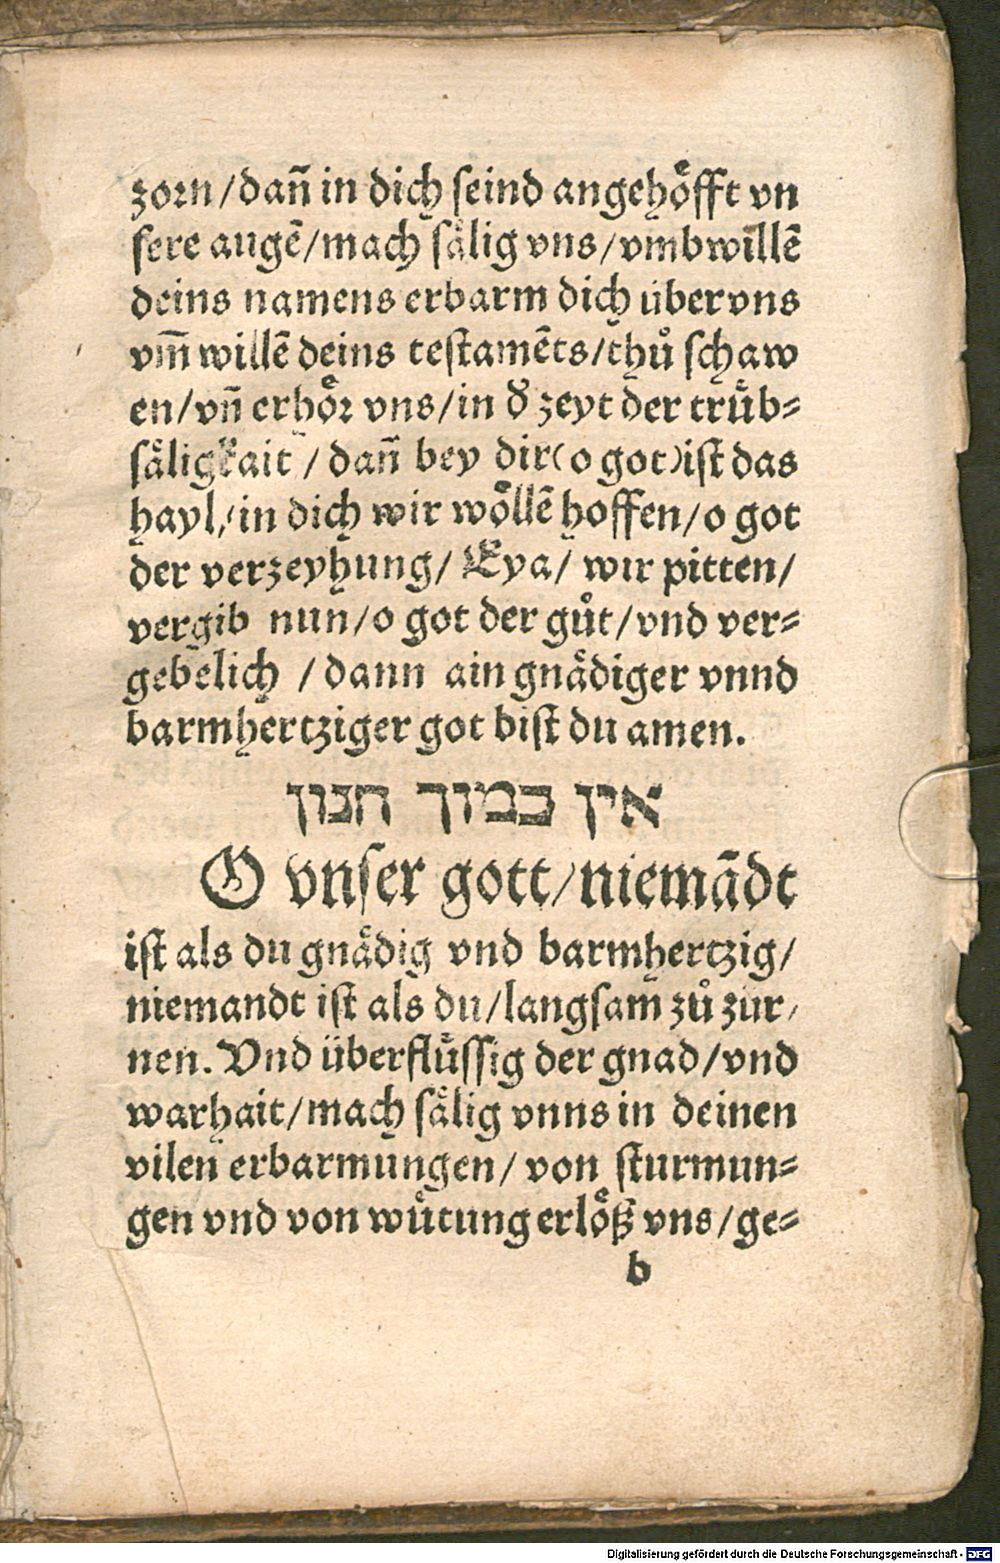 zorn/dañ in dich seind angehoͤfft vn
sere augẽ/mach saͤlig vns/vmbwillẽ
deins namens erbarm dich über vns
vm̃ willẽ deins testamẽts/thuͦ schaw
en/vñ erhoͤr vns/in d̕ zeyt der truͤb⸗
saͤligkait / dañ bey dir(o got)ist das
hayl/in dich wir woͤllẽ hoffen/o got
der verzeyhung/ Eya/ wir pitten/
vergib nun/o got der guͦt/vnd ver⸗
gebelich /dann ain gnaͤdiger vnnd
barmhertziger got bist du amen.
אין כמוך חנון
O vnser gott/niemãdt
ist als du gnaͤdig vnd barmhertzig/
niemandt ist als du/langsam zuͦ zür/
nen. Vnd überfluͤssig der gnad/vnd
warhait/mach saͤlig vnns in deinen
vilen erbarmungen/ von sturmun⸗
gen vnd von wuͤtung erloͤß vns/ge⸗
b
Digitalisierung gefördert durch die Deutsche Forschungsgemeinschaft - DFG